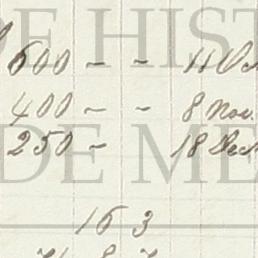 DE HIST
600 - - 11 Oct
400 - - 8 Nov.
250 - 18 Dec
DE ME
16 3